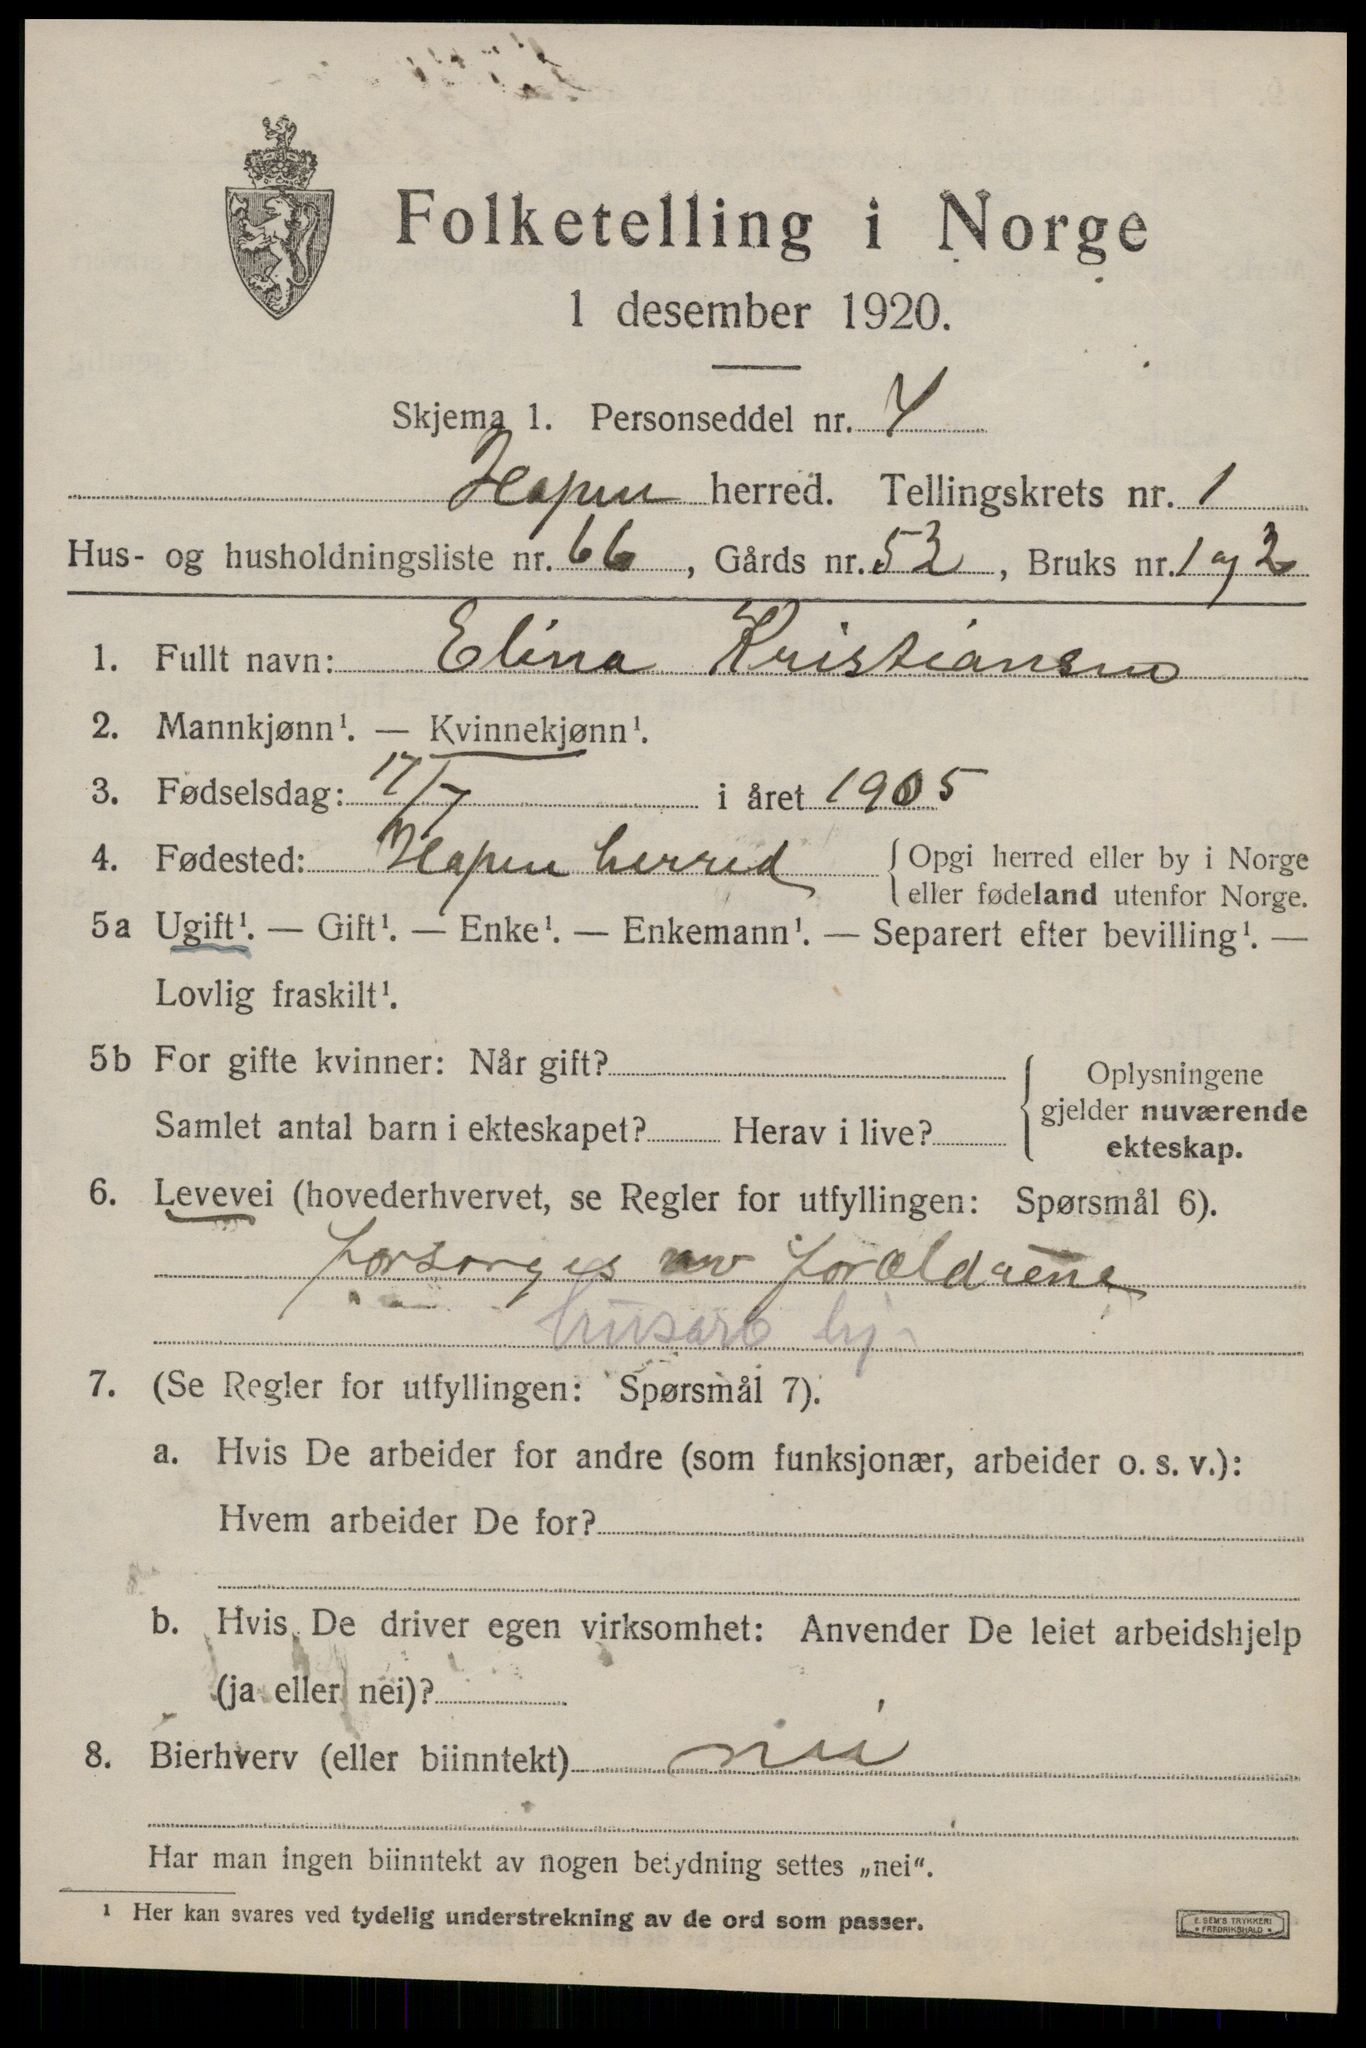 Folketelling i Norge
1 desember 1920.
Skjema 1. Personseddel nr. 4
herred. Tellingskrets nr. 1
Hus- og husholdningsliste nr. 66, Gårds nr. 52, Bruks nr. 1 og 2
1. Fullt navn: Elina Kristiansen
2. Mannkjønn¹. — Kvinnekjønn¹.
3. Fødselsdag: 17/7 i året 1905
4. Fødested: herred {Opgi herred eller by i Norge
eller fødeland utenfor Norge.
5a Ugift¹. — Gift¹. — Enke¹. — Enkemann¹. — Separert efter bevilling¹. —
Lovlig fraskilt¹.
5b For gifte kvinner: Når gift?
Samlet antal barn i ekteskapet? Herav i live?
Oplysningene
gjelder nuværende
ekteskap.
6. Levevei (hovederhvervet, se Regler for utfyllingen: Spørsmål 6).
forsørges av forældrene
husarb
7. (Se Regler for utfyllingen: Spørsmål 7).
a. Hvis De arbeider for andre (som funksjonær, arbeider o. s. v.):
Hvem arbeider De for?
b. Hvis De driver egen virksomhet: Anvender De leiet arbeidshjelp
(ja eller nei)?
8. Bierhverv (eller biinntekt) nei
Har man ingen biinntekt av nogen betydning settes „nei“.
¹ Her kan svares ved tydelig understrekning av de ord som passer.
E. SEM'S TRYKKERI
FREDRIKSHALD